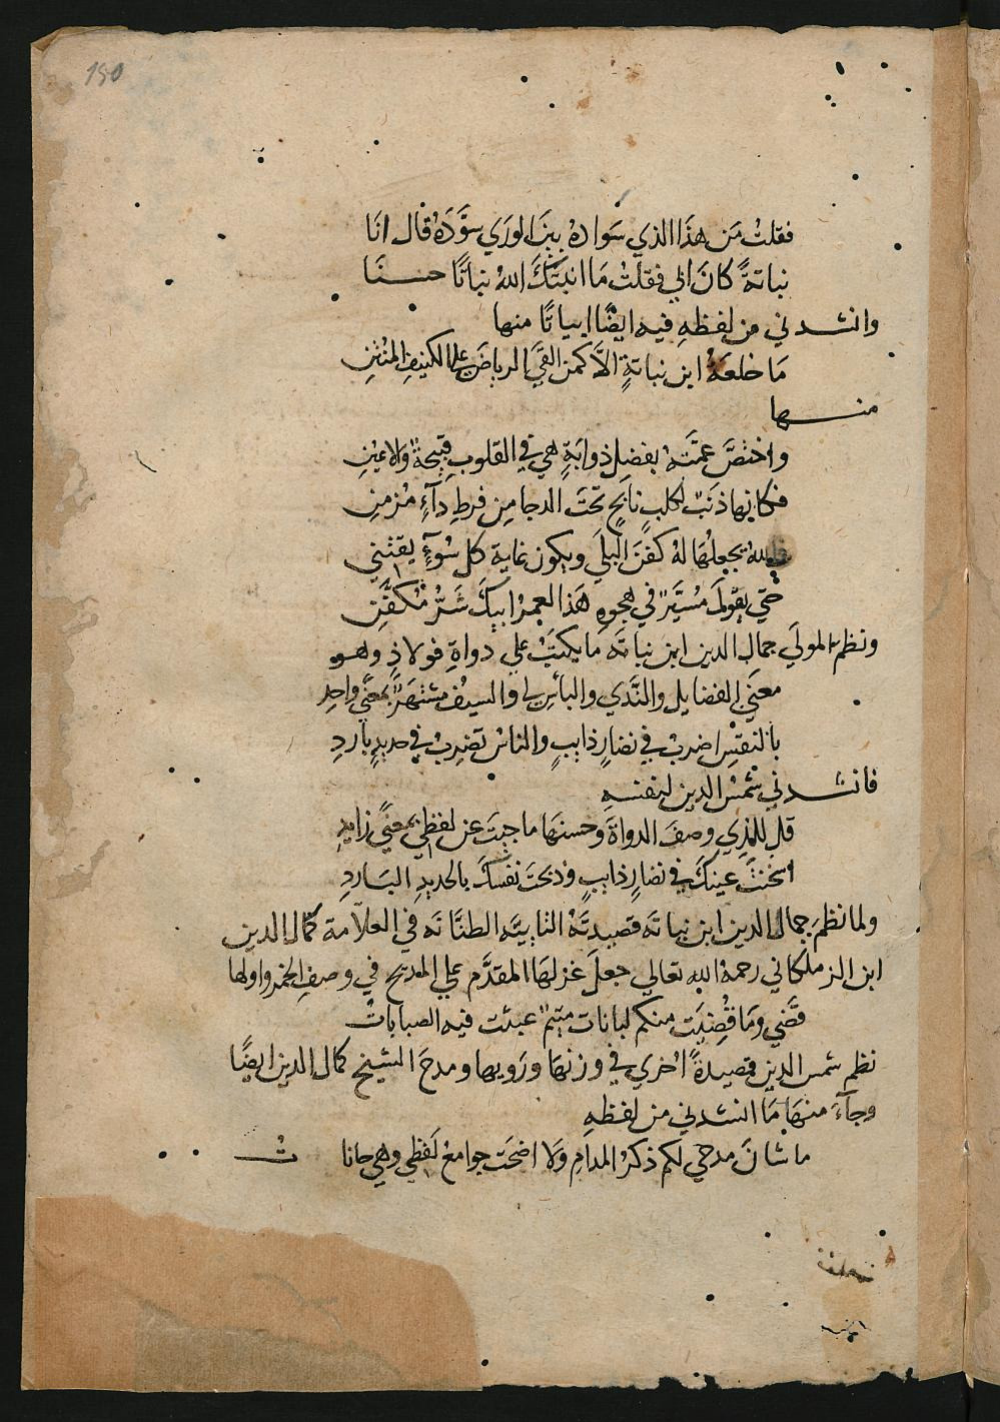 150
فقلتُ مَن هذَا الذي سَوادهُ بينَ الورَي سوَّدَهُ قال انَا
نباتةً كانَ ابي فقلتُ مَا انبتكَ اللهُ نباتًا حسنَا
وانشدني من لفظهِ فيه ايضًا ابياتًا منها
مَا خلعَهُ ابن نباتةٍ الاَّ كمن القَي الرياضَ علي الكنيفِ المنتنِ
منها
واختصَّ عمَّتَه بفضلِ ذوابَةٍ هي في القلوبِ قبيحةٌ ولاعينِ
فكانها ذنَبٌ لكلبٍ نابحٍ تحتَ الدجا من فرطِ دآءٍ مُزمنِ
يجعلُهَا لهُ كفنَ البلَي ويكون غاية كل سُوءٍ يقتني
حتي يقولَ مُسيَّرٌ في هجوهِ هَذا لعمرُ ابيكَ شَرُّ مُكفَّنِ
ونظم المولَي جمال الدين ابن نباتَه مَا يكتَبُ علي دواةِ فولاذٍ وهو
معنَي الفضايل والنَّدي والباسِ لي والسيفُ مشتهرٌ بمعنًي واحدِ
بالنفسِ اضربُ في نضارٍ ذايبٍ والناسُ تضربُ في حديدٍ باردِ
فانشدني شمسُ الدين لنفسهِ
قل للذِي وصفَ الدواةَ وحسنهَا ما جيتَ عن لفظِي بمعنًي زايدِ
اسخنتَ عينكَ في نضارٍ ذايبٍ وذبحتَ نفسكَ بالحديدِ البَاردِ
ولما نظمَ جمال الدين ابن نباتَه قصيدتَهُ التاييَّه الطنَّانَه في العلاّمة كمال الدين
ابن الزملكاني رحمهُ الله تعالي جعلَ غزلهَا المقدَّم علي المديح في وصفِ الخمر واولها
قضَي ومَا قُضِيَت منكم لباناتُ متيمٌ عبثت فيه الصباباتُ
نظم شمس الدين قصيدةً اخري في وزنهَا ورَويها ومدحَ الشيخ كمال الدين ايضًا
وجآءَ منهَا مَا انشدني من لفظهِ
ما شانَ مدحي لكم ذكرُ المدامِ وَلا اضحَت جوامعُ لَفظي وهي حاناتُ